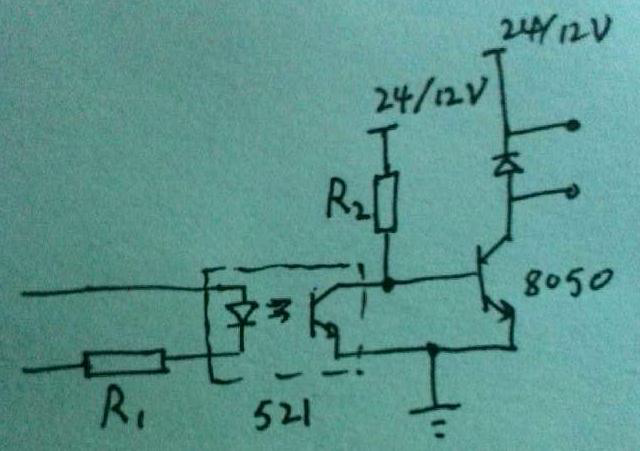 24/12V
24/12V
R2
8050
R1
521